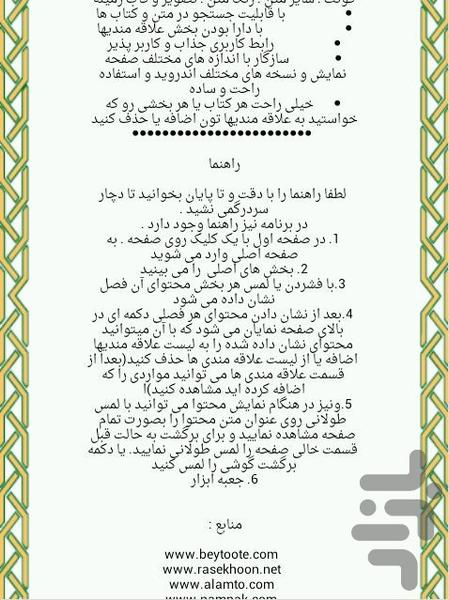 با قابلیت جستجو در متن و کتاب ها
با دارا بودن بخش علاقه مندیها
رابط کاربری جذاب و کاربر پذیر
سازگار با اندازه های مختلف صفحه
نمایش و نسخه های مختلف اندروید و استفاده
راحت و ساده
خیلی راحت هر کتاب یا هر بخشی رو که
خواستید به علاقه مندیها تون اضافه یا حذف کنید
راهنما
لطفا راهنما را با دقت و تا پایان بخوانید تا دچار
سردرگمی نشید .
در برنامه نیز راهنما وجود دارد .
1. در صفحه اول با یک کلیک روی صفحه . به
صفحه اصلی وارد می شوید
2. بخش های اصلی را می بینید
3.با فشردن یا لمس هر بخش محتوای آن فصل
نشان داده می شود
4.بعد از نشان دادن محتوای هر فصلی دکمه ای در
بالای صفحه نمایان می شود که با آن میتوانید
محتوای نشان داده شده را به لیست علاقه مندیها
اضافه یا از لیست علاقه مندی ها حذف کنید(بعدا از
قسمت علاقه مندی ها می توانید مواردی را که
اضافه کرده اید مشاهده کنید)ا
5.ونیز در هنگام نمایش محتوا می توانید با لمس
طولانی روی عنوان متن محتوا را بصورت تمام
صفحه مشاهده نمایید و برای برگشت به حالت قبل
قسمت خالی صفحه را لمس طولانی نمایید. یا دکمه
برگشت گوشی را لمس کنید
6. جعبه ابزار
منابع :
www.beytoote.com
www.rasekhoon.net
www.alamto.com
بازار